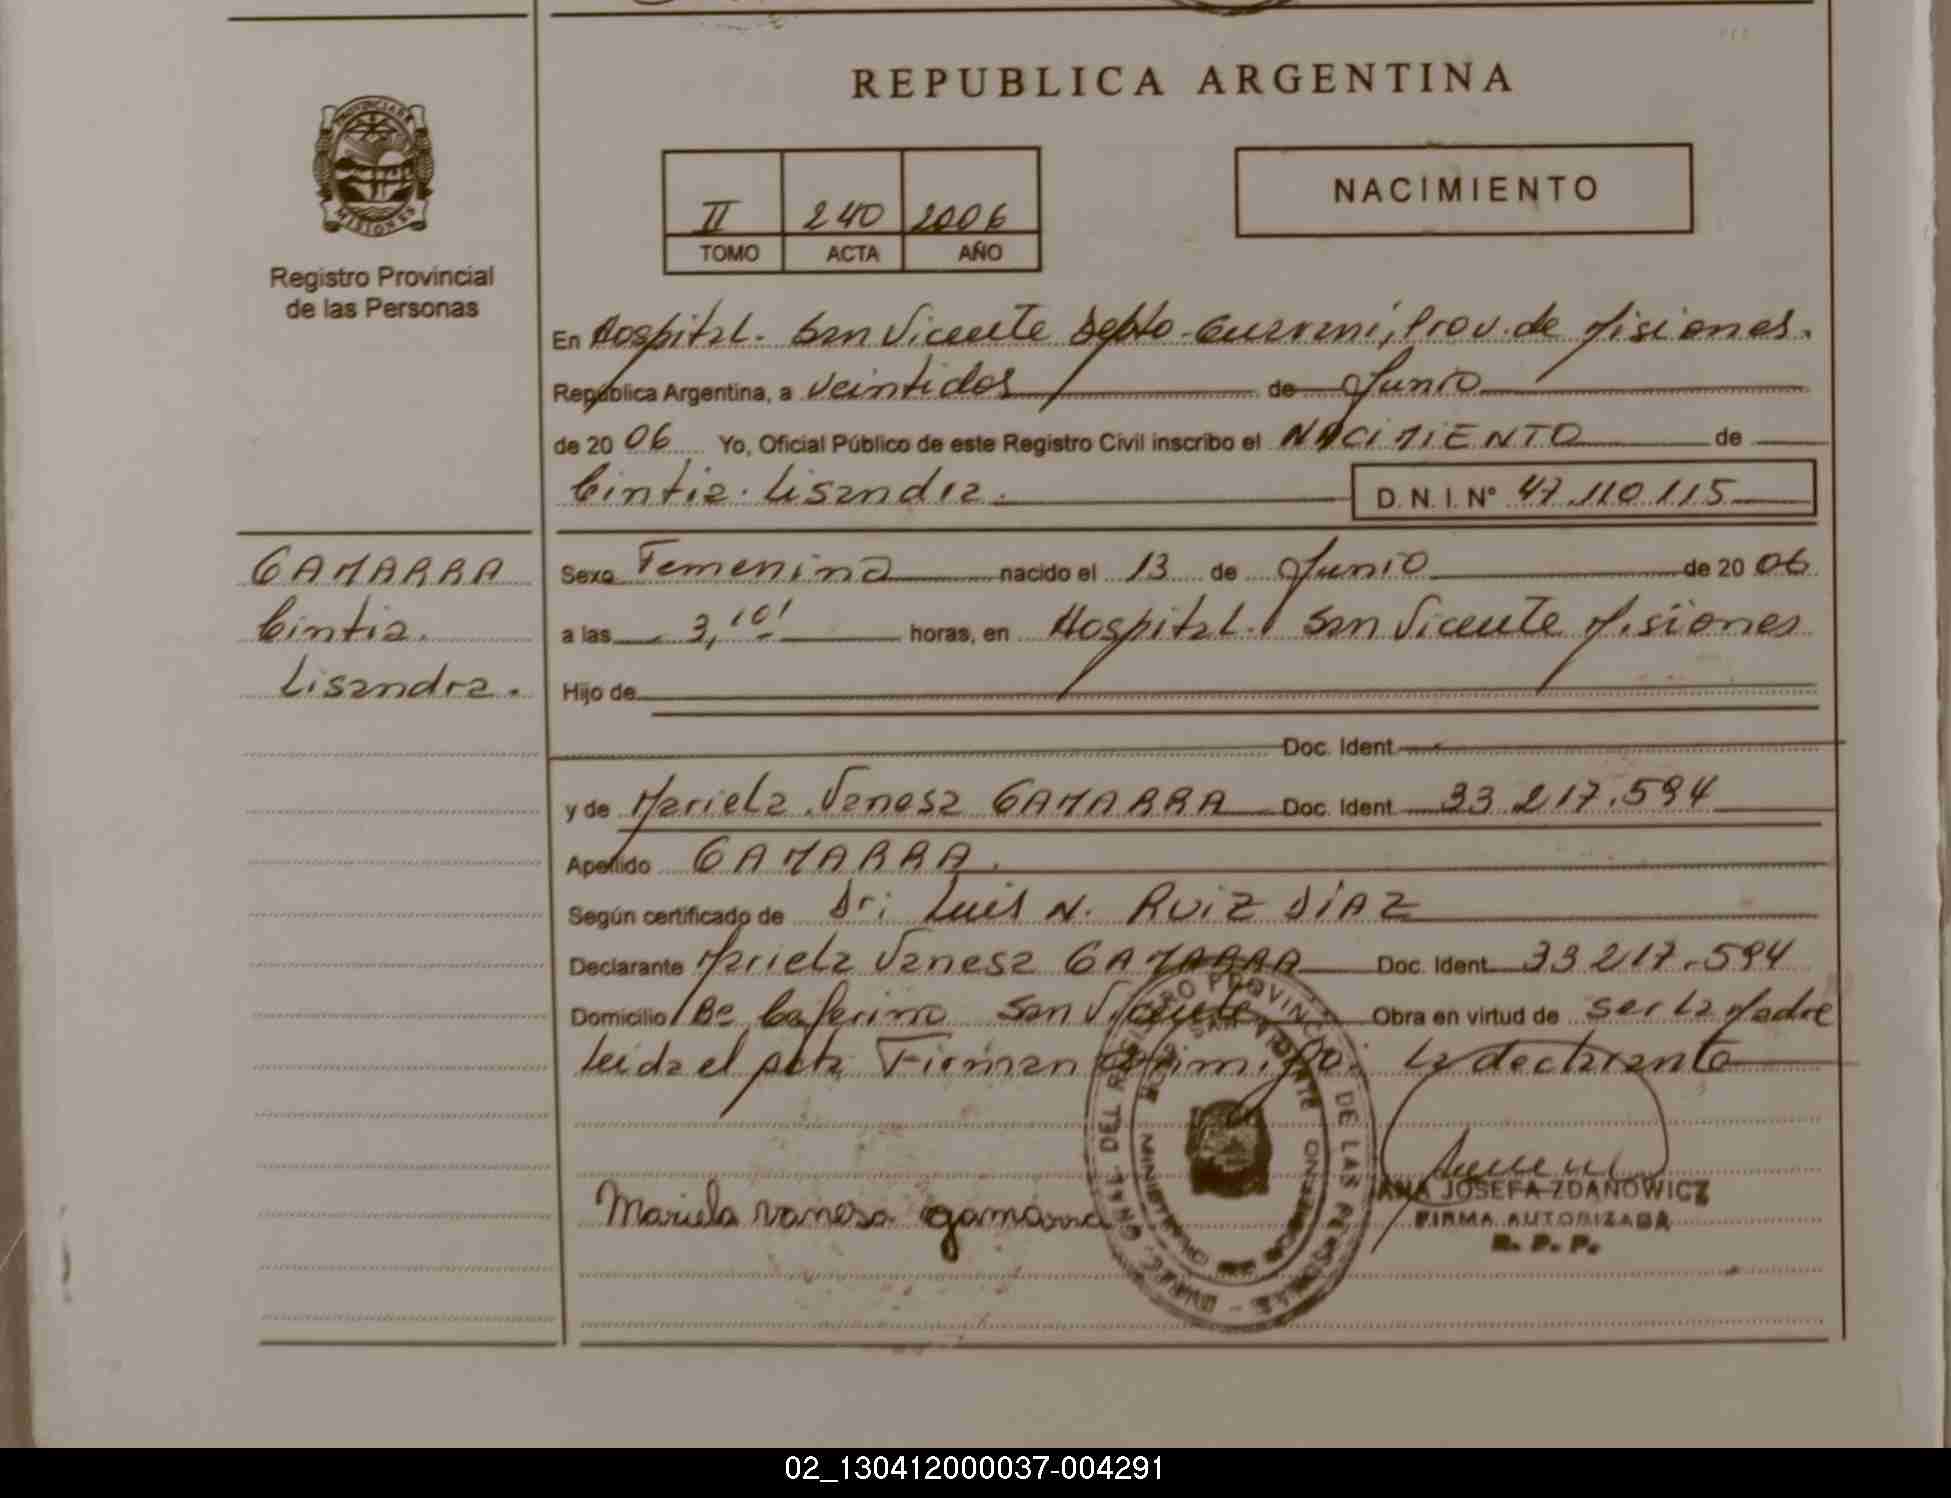 REPUBLICA ARGENTINA
PROVINCIA DE
MISIONES
Registro Provincial
de las Personas
II 240 2006
TOMO ACTA AÑO
NACIMIENTO
En Hospital. San Vicente Depto. Guarani, Prov. de Misiones.
República Argentina, a veintidos de Junio
de 20 06 Yo, Oficial Público de este Registro Civil inscribo el NACIMIENTO de
Cintia. Lisandra. D. N. I. N° 47.110.115
GAMARRA
Cintia.
Lisandra.
Sexo Femenina nacido el 13 de Junio de 20 06
a las 3,10' horas, en Hospital. San Vicente Misiones
Hijo de
Doc. Ident.
y de Mariela Vanesa GAMARRA Doc. Ident. 33.217.594
Apellido GAMARRA.
Según certificado de Dr: Luis N. RUIZ DIAZ
Declarante Mariela Vanesa GAMARRA Doc. Ident. 33.217.594
Domicilio Bº Ceferino San Vicente Obra en virtud de ser la Madre
Leida el acta Firman la declarante
Mariela vanesa gamarra
DIREC. GRAL. DEL REGISTRO PROVINCIAL DE LAS PERSONAS
ANA JOSEFA ZDANOWICZ
FIRMA AUTORIZADA
R. P. P.
02_130412000037-004291